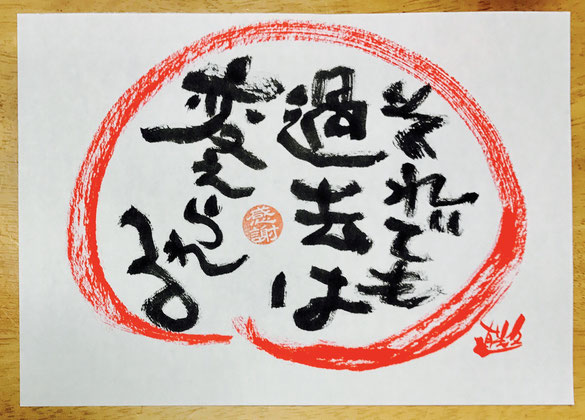 それでも
過去は
変えられる
感謝